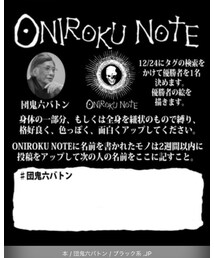 ONIROKU NOTE
団鬼六バトン
ONIROKU NOTE
12/24にタグの検索を
かけて優勝者を1名
決めます。
優勝者の絵を
描きます。
身体の一部分、もしくは全身を縄状のもので縛り、
格好良く、色っぽく、面白くアップしてください。
ONIROKU NOTEに名前を書かれたモノは2週間以内に
投稿をアップして次の人の名前をここに記すこと。
#団鬼六バトン